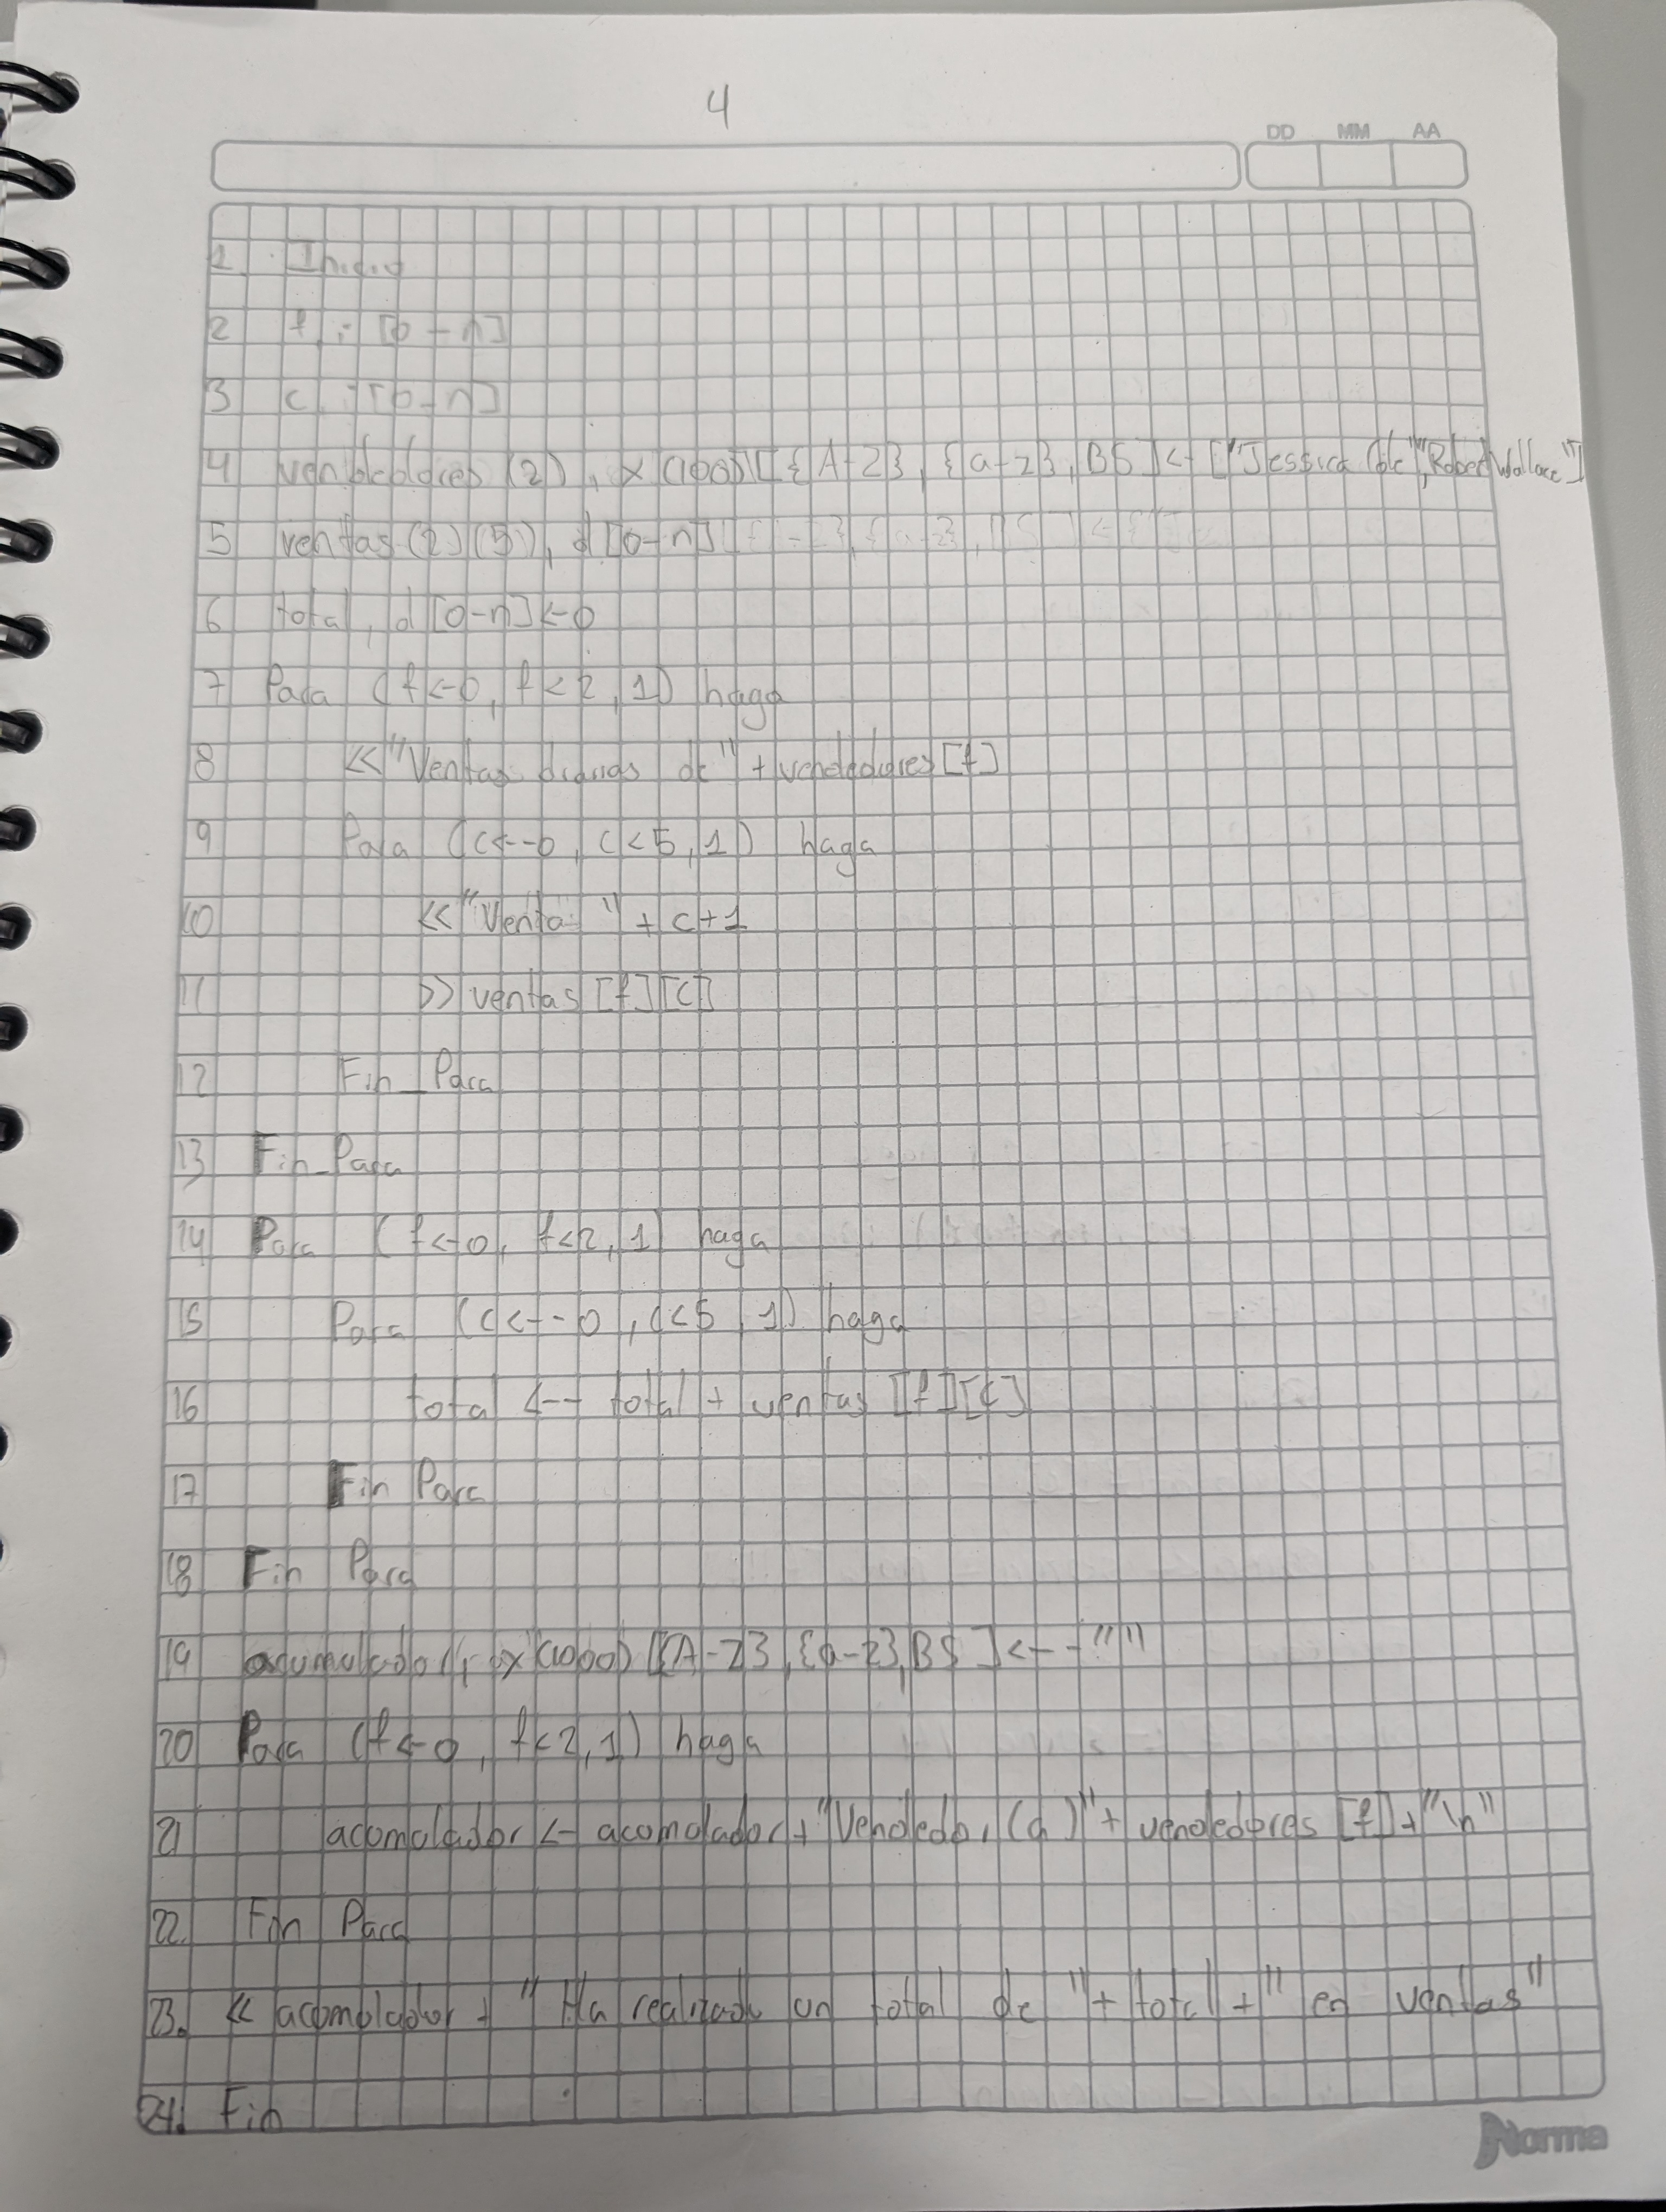 4
DD MM AA
1. Inicio
2 f : [0 - n]
3 c : [0-n]
4 vendedores (2), x (100) [{A-Z}, {a-z}, BS] <- ["Jessica Cole", "Robert Wallace"]
5 ventas (2) (5), d [0-n]
6 total, d [0-n] <- 0
7 Para (f<-0, f<2, 1) haga
8 << "Ventas diarias de" + vendedores [f]
9 Para (c<--0, c<5, 1) haga
10 << "Venta " + c+1
11 >> ventas [f][c]
12 Fin_Para
13 Fin_Para
14 Para (f<-0, f<2, 1) haga
15 Para (c<--0, c<5, 1) haga
16 total <-- total + ventas [f][c]
17 Fin Para
18 Fin Para
19 acumulador, x (1000) [{A-Z}, {a-z}, BS] <-- ""
20 Para (f<-0, f<2, 1) haga
21 acomolador <- acomolador + "Vendedor (a)" + vendedores [f] + "\n"
22. Fin Para
23. << acomolador + "Ha realizado un total de " + total + " en ventas"
24. Fin
Norma